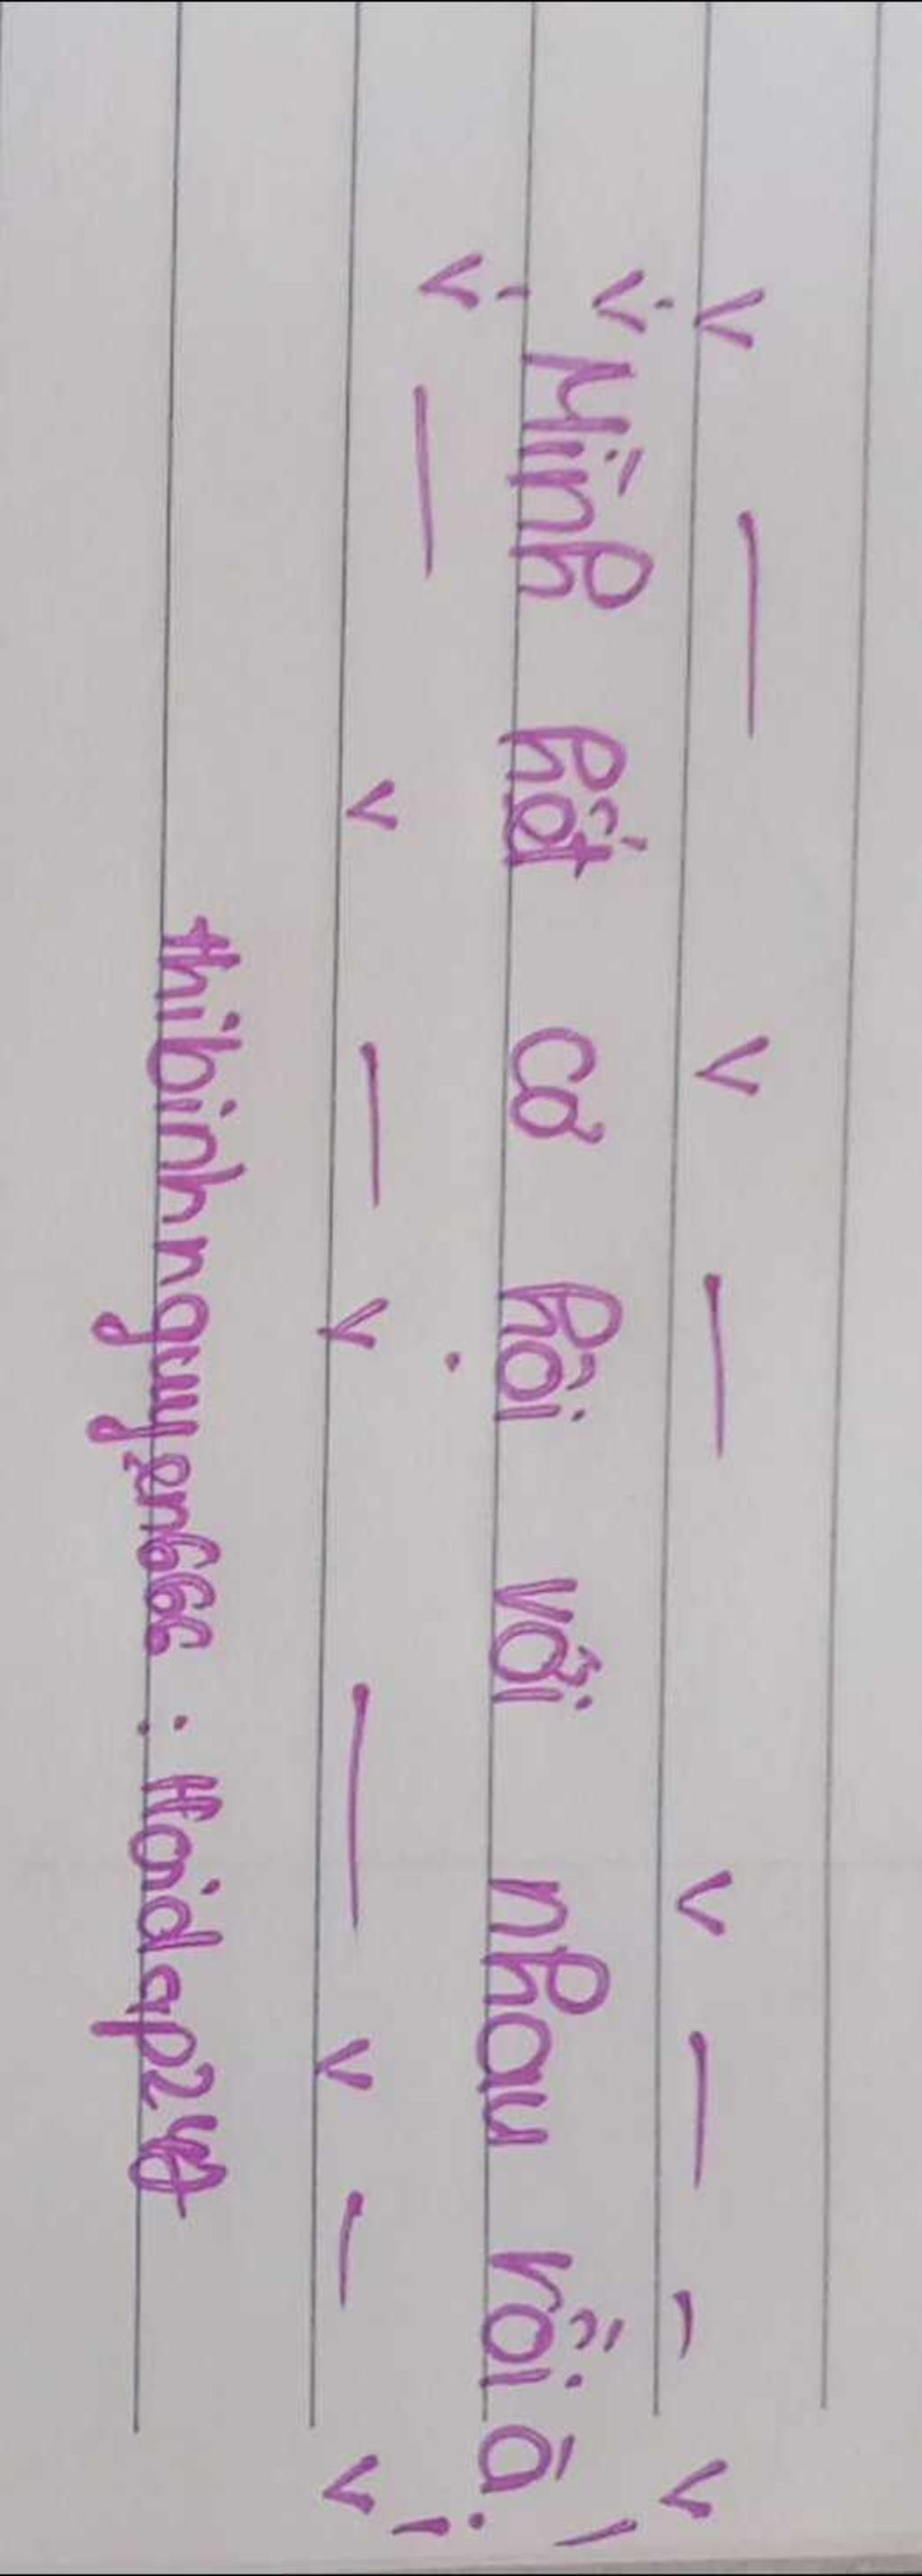 Mình hết cơ hội với nhau rồi à.
thibinhnguyen666 : Hoidap247